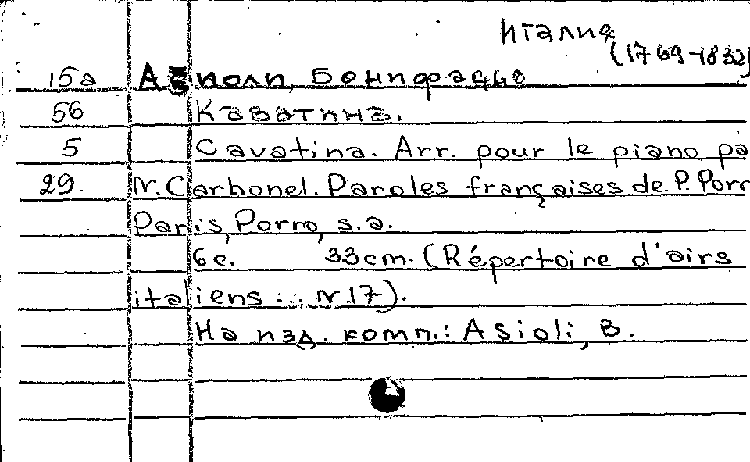 Италия
(1769-1832)
15а Азиоли, Бонифацио
56 Каватина.
5 Cavatina. Arr. pour le piano pa
29. N. Carbonel. Paroles françaises de P. Porr
Paris, Porro, s.a.
6с. 33cm. (Répertoire d'airs
italiens : . N.17).
На изд. комп.: Asioli, B.